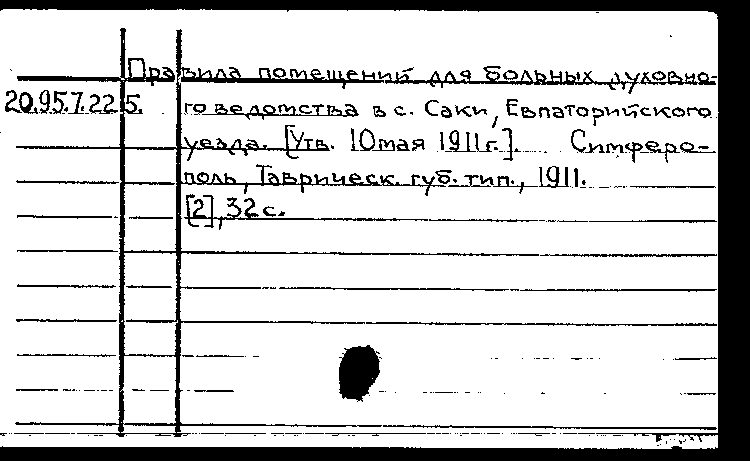 Правила помещений для больных духовно-
20.95.7.22 5. го ведомства в с. Саки, Евпаторийского
уезда. [Утв. 10 мая 1911 г.]. Симферо-
поль, Таврическ. губ. тип., 1911.
[2], 32 с.